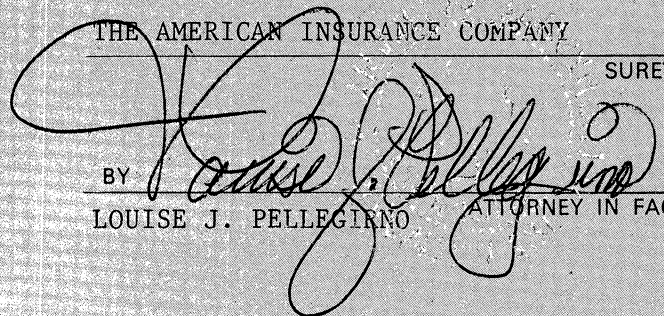 THE AMERICAN INSURANCE COMPANY
SURE
BY Louise J. Pellegrino
LOUISE J. PELLEGIRNO ATTORNEY IN FAC